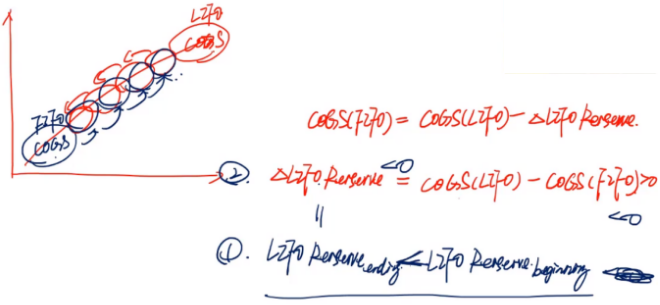 LIFO
COGS
FIFO
COGS
COGS(FIFO) = COGS(LIFO) - △LIFO Reserve.
②. △LIFO Reserve <0 = COGS(LIFO) - COGS(FIFO)>0
<0
||
①. LIFO Reserve ending < LIFO Reserve beginning